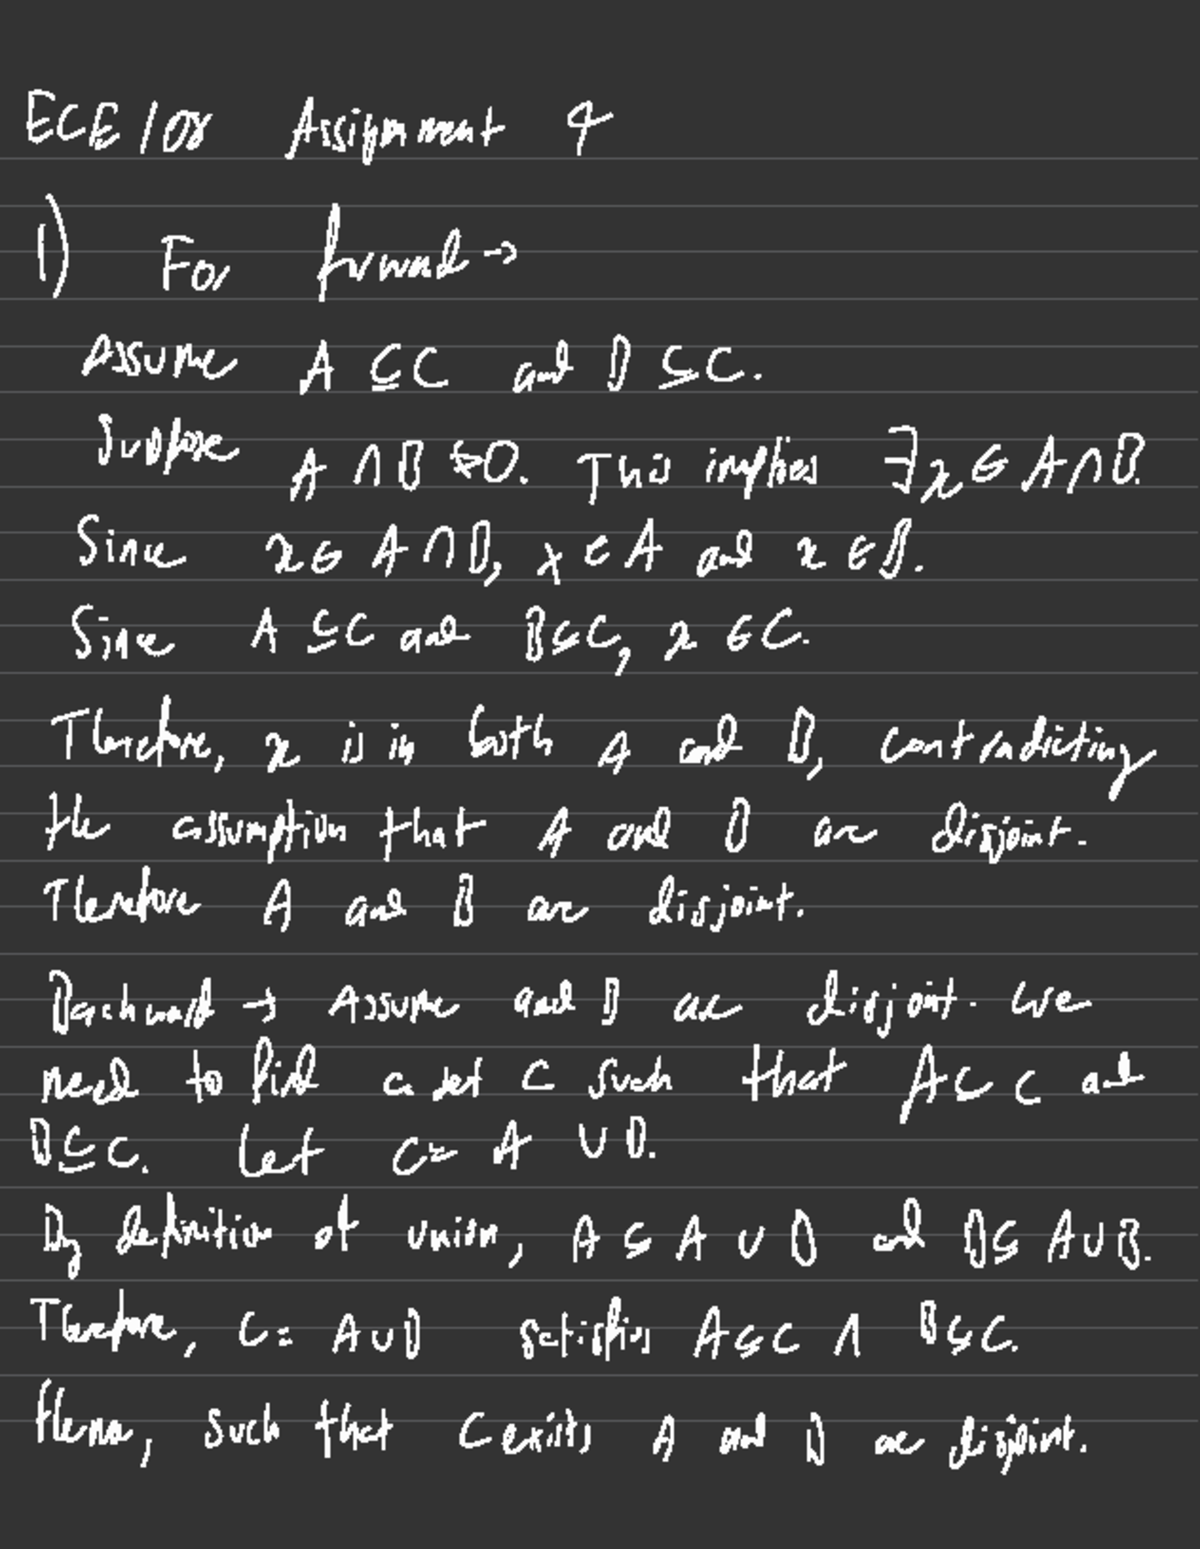 ECE 108 Assignment 4
1) For forward →
Assume A ⊆ C and B ⊆ C.
Suppose A ∩ B ≠ 0. This implies ∃x ∈ A∩B.
Since x ∈ A ∩ B, x ∈ A and x ∈ B.
Since A ⊆ C and B ⊆ C, x ∈ C.
Therefore, x is in both A and B, contradicting
the assumption that A and B are disjoint.
Therefore A and B are disjoint.
Backward → Assume and B are disjoint. We
need to find a set C such that A ⊆ C and
B ⊆ C. Let C = A ∪ B.
By definition of union, A ⊆ A ∪ B and B ⊆ A∪B.
Therefore, C = A∪B satisfies A ⊆ C ∧ B ⊆ C.
Hence, such that C exists A and B are disjoint.